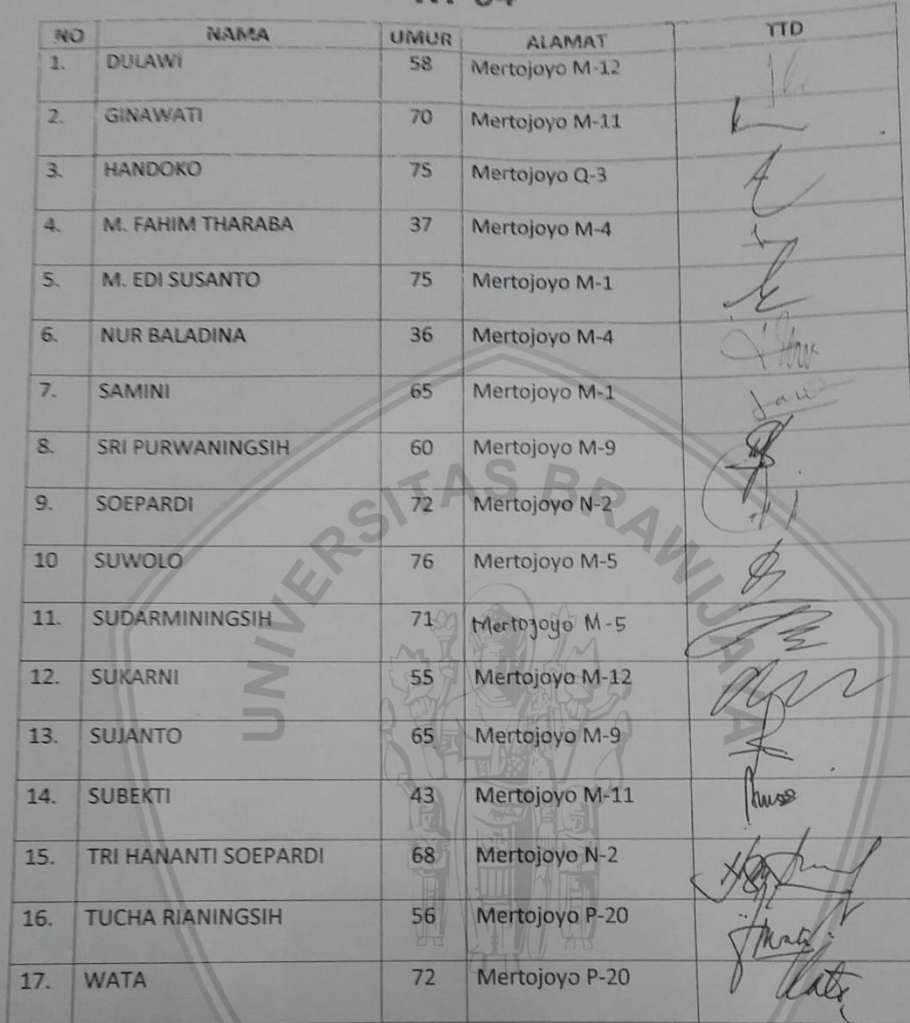 NO NAMA UMUR ALAMAT TTD
1. DULAWI 58 Mertojoyo M-12
2. GINAWATI 70 Mertojoyo M-11
3. HANDOKO 75 Mertojoyo Q-3
4. M. FAHIM THARABA 37 Mertojoyo M-4
5. M. EDI SUSANTO 75 Mertojoyo M-1
6. NUR BALADINA 36 Mertojoyo M-4
7. SAMINI 65 Mertojoyo M-1
8. SRI PURWANINGSIH 60 Mertojoyo M-9
9. SOEPARDI 72 Mertojoyo N-2
10 SUWOLO 76 Mertojoyo M-5
11. SUDARMININGSIH 71 Mertojoyo M-5
12. SUKARNI 55 Mertojoyo M-12
13. SUJANTO 65 Mertojoyo M-9
14. SUBEKTI 43 Mertojoyo M-11
15. TRI HANANTI SOEPARDI 68 Mertojoyo N-2
16. TUCHA RIANINGSIH 56 Mertojoyo P-20
17. WATA 72 Mertojoyo P-20
UNIVERSITAS BRAWIJAYA